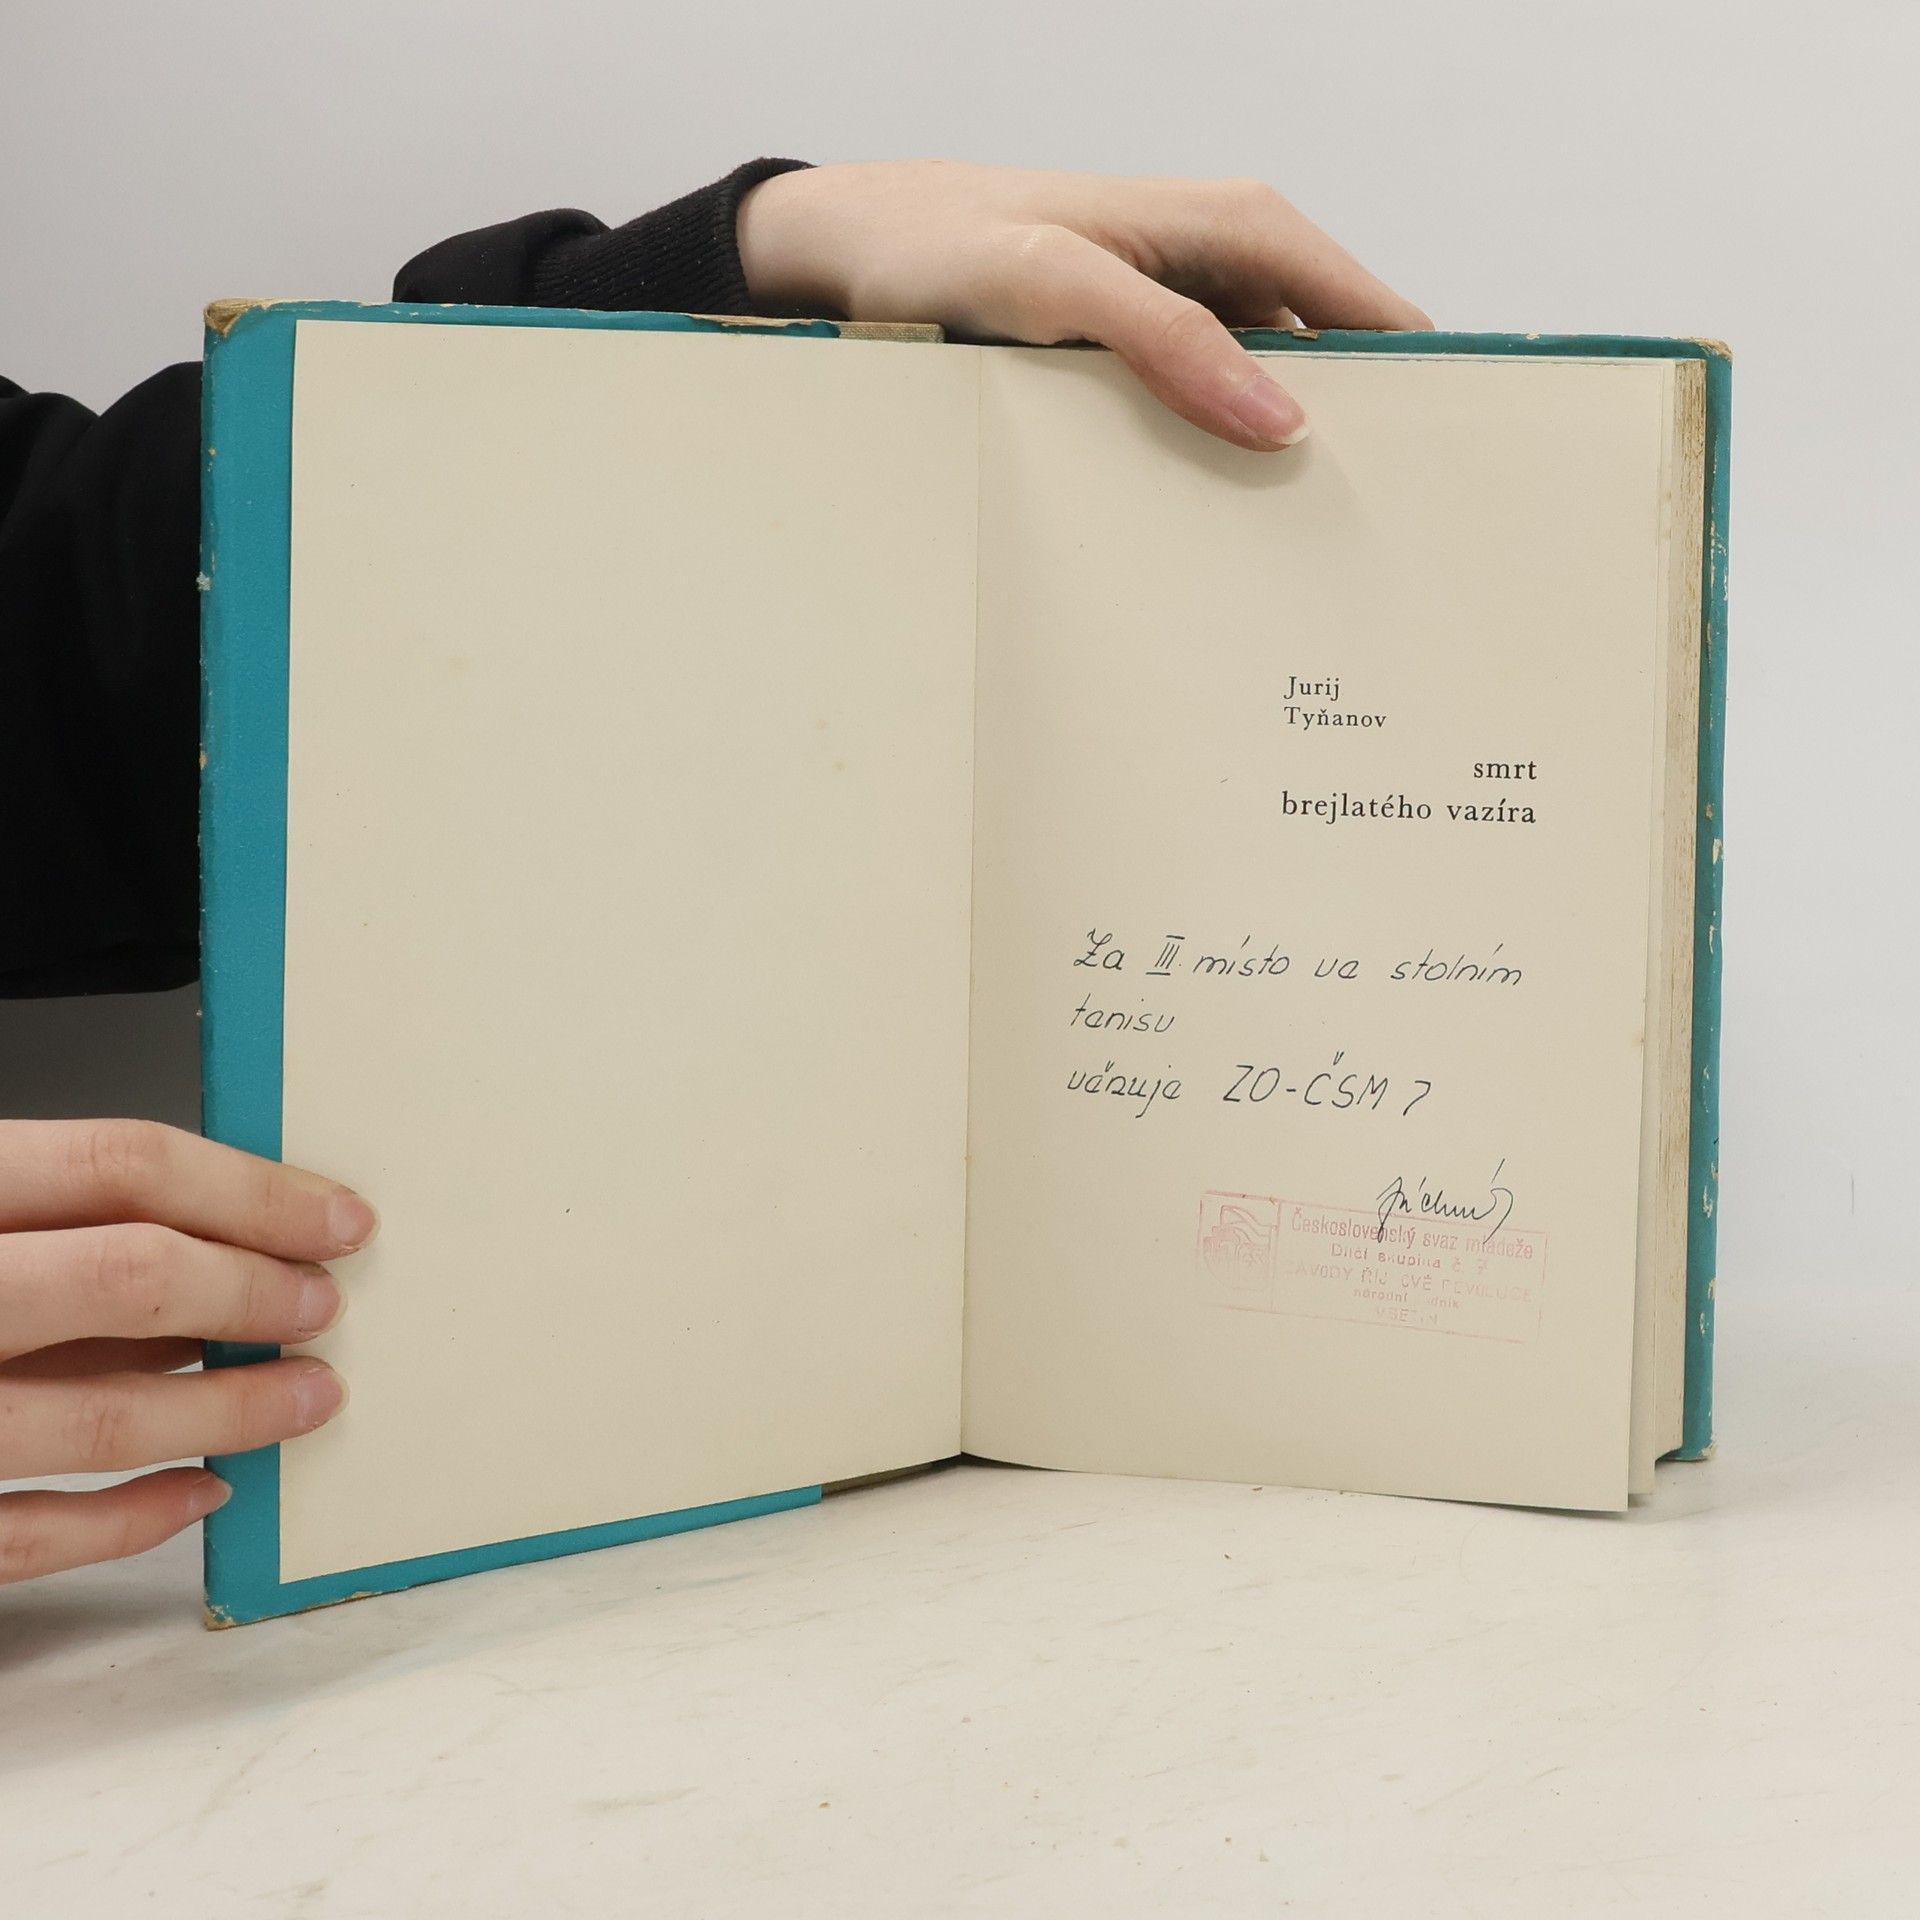 Jurij
Tyňanov
smrt
brejlatého vazíra
Za III. místo ve stolním
tenisu
věnuje ZO-ČSM 7
Československý svaz mládeže
Dílčí skupina č. 7
národní